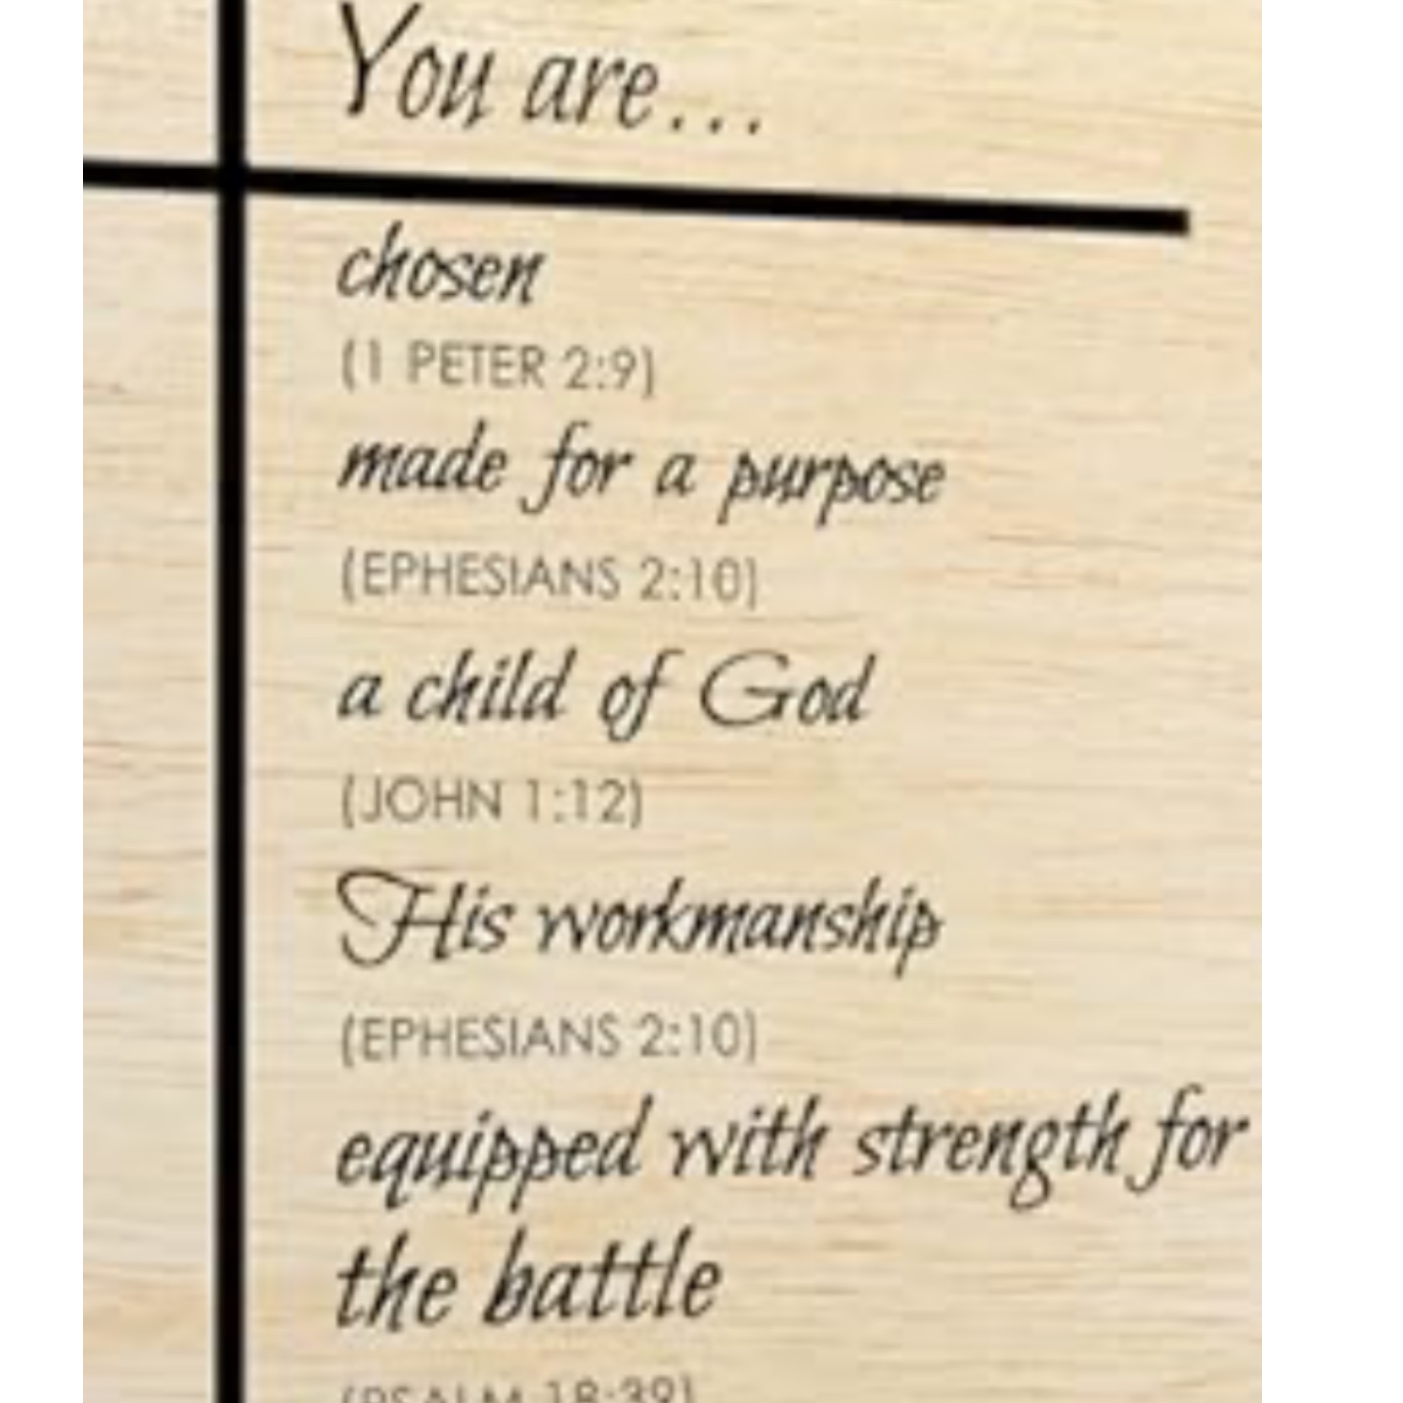 You are...
chosen
(1 PETER 2:9)
made for a purpose
(EPHESIANS 2:10)
a child of God
(JOHN 1:12)
His workmanship
(EPHESIANS 2:10)
equipped with strength for
the battle
(PSALM 18:39)